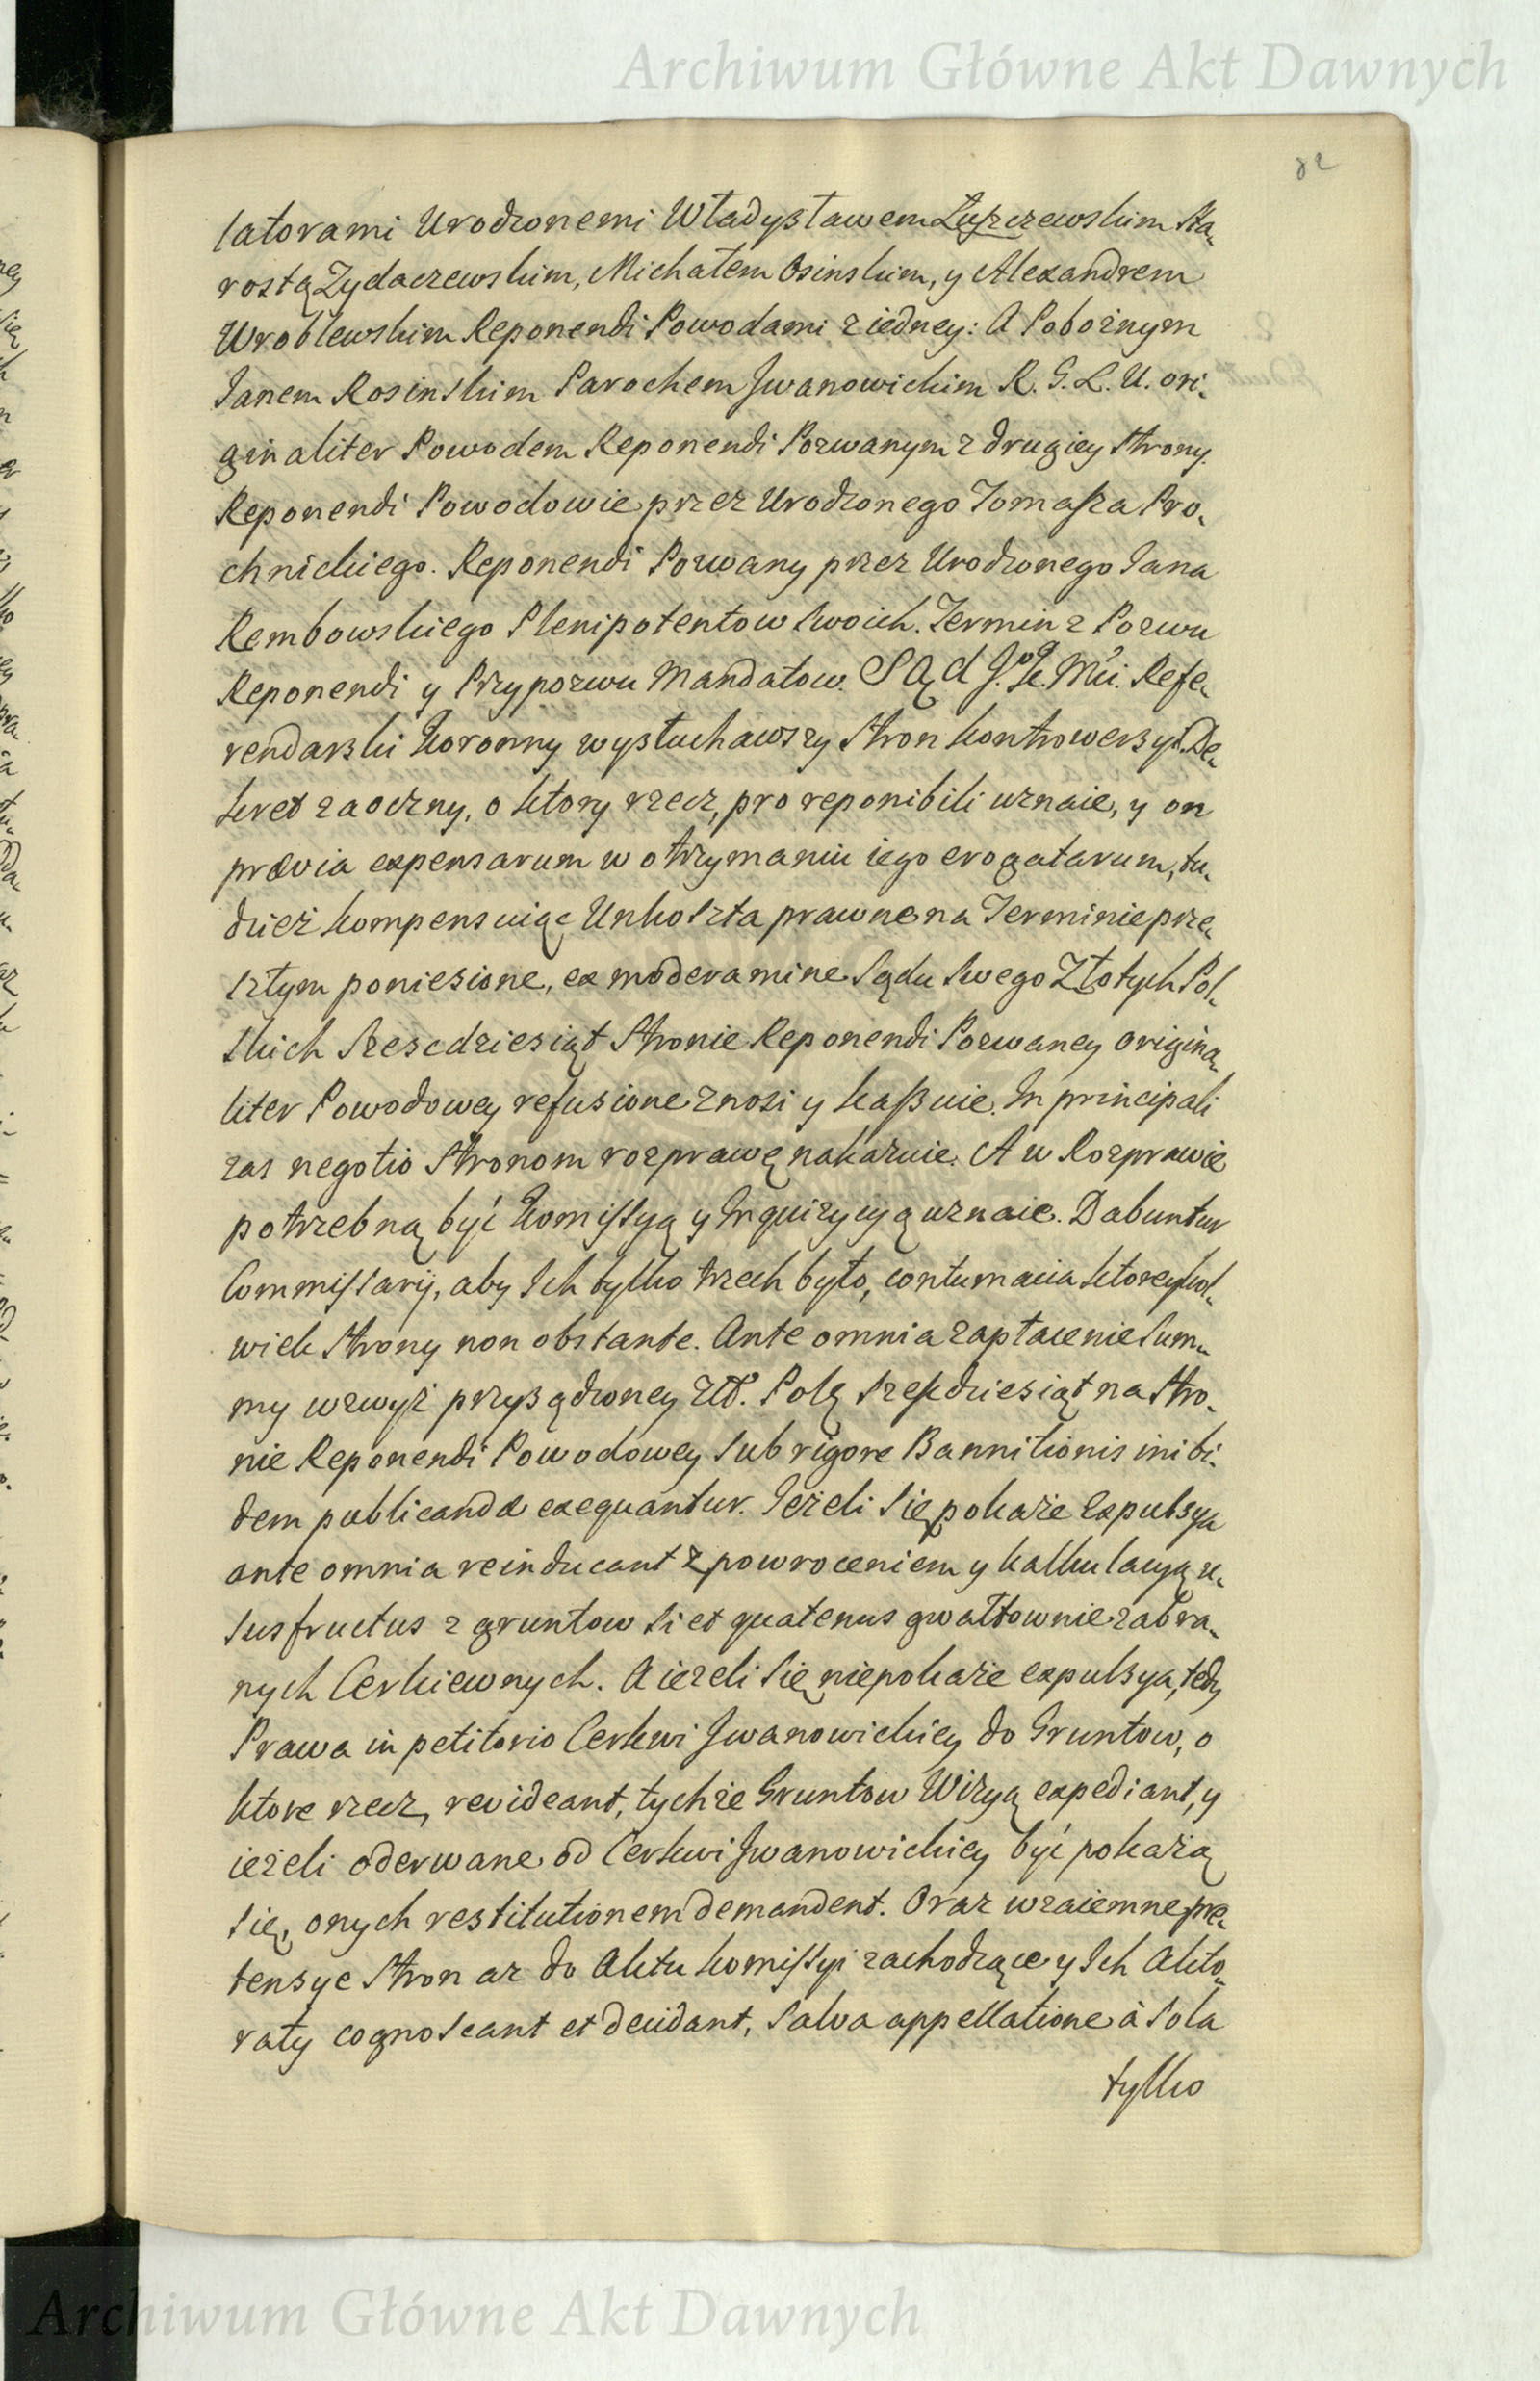 Archiwum Główne Akt Dawnych
82
latorami Urodzonemi Władysławem Łuszczewskim Sta-
rostą Zydaczewskim, Michałem Osinskim, y Alexandrem
Wroblewskim Reponendi Powodami z iedney: A Pobożnym
Janem Rosinskim Parochem Jwanowickim R. G. L. U. ori-
ginaliter Powodem Reponendi Pozwanym z drugiey Strony.
Reponendi Powodowie przez Urodzonego Tomasza Pro-
chnickiego. Reponendi Pozwany przez Urodzonego Jana
Rembowskiego Plenipotentow Swoich. Termin z Pozwu
Reponendi y Przypozwu Mandatow. Sąd Refe-
rendarski Koronny wysłuchawszy Stron kontrowersyi De-
kret zaoczny, o ktory rzecz, pro reponibili uznaie, y on
prævia expensarum w otrzymaniu iego erogatarum, tu-
dzież kompensuiąc Unkoszta prawne na Terminie prze-
szłym poniesione, ex moderamine Sądu Swego Złotych Pol-
skich Szescdziesiąt Stronie Reponendi Pozwaney origina-
liter Powodowey refusione znosi y kassuie. In principali
zas negotio Stronom rozprawę nakazuie. A w Rozprawie
potrzebną być Komissyą y Inquizycyą uznaie. Dabuntur
Commissarij, aby Jch tylko trzech było, contumacia ktoreykol-
wiek Strony non obstante. Ante omnia zapłacenie Sum-
my wzwyż przysądzoney Złł. Pols Szescdziesiąt na Stro-
nie Reponendi Powodowey Sub rigore Bannitionis inibi-
dem publicandæ exequantur. Jeżeli Się pokaże Expulsya
ante omnia reinducant z powroceniem y kalkulacyą u-
susfructus z gruntow Si et quatenus gwałtownie zabra-
nych Cerkiewnych. A ieżeli Się niepokaże expulsya, tedy
Prawa in petitorio Cerkwi Jwanowickiey do Gruntow, o
ktore rzecz, revideant, tychże Gruntow Wizyą expediant, y
ieżeli oderwane od Cerkwi Jwanowickiey być pokażą
Się, onych restitutionem demandent. Oraz wzaiemne pre-
tensye Stron az do Aktu Komissyi zachodzące y Jch Akto-
raty cognoscant et decidant, Salva appellatione à Sola
tylko
Archiwum Główne Akt Dawnych